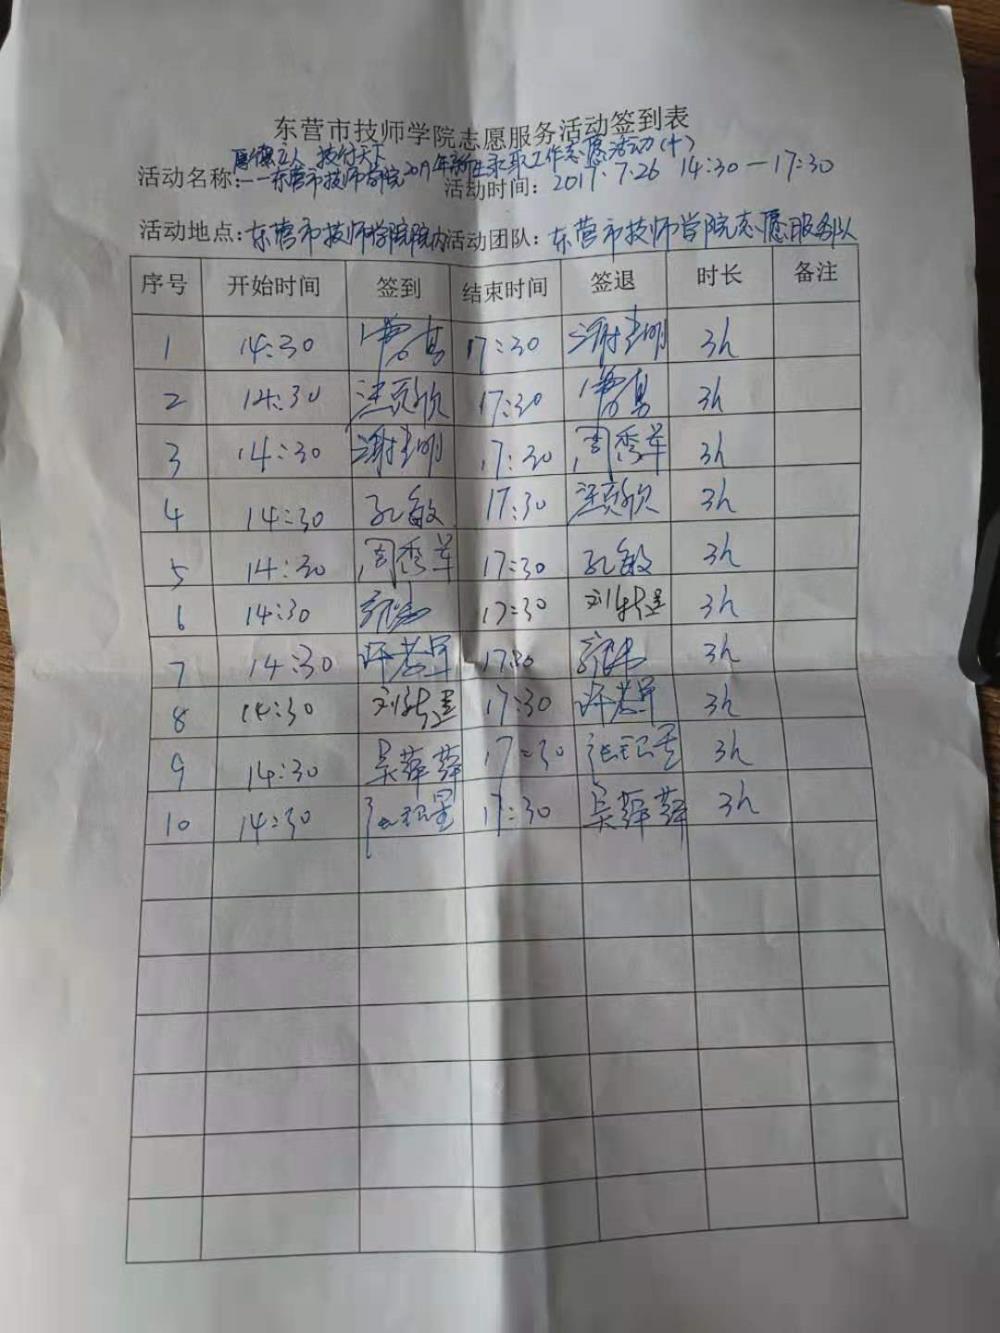 东营市技师学院志愿服务活动签到表
厚德立人 技行天下
活动名称:——东营市技师学院2017年新生录取工作志愿活动(十) 活动时间: 2017.7.26 14:30—17:30
活动地点: 东营市技师学院院内 活动团队: 东营市技师学院志愿服务队
序号 开始时间 签到 结束时间 签退 时长 备注
1 14:30 17:30 3h
2 14:30 17:30 3h
3 14:30 17:30 周秀军 3h
4 14:30 孔敏 17:30 3h
5 14:30 周秀军 17:30 孔敏 3h
6 14:30 17:30 3h
7 14:30 17:30 3h
8 14:30 17:30 3h
9 14:30 吴萍萍 17:30 3h
10 14:30 17:30 吴萍萍 3h